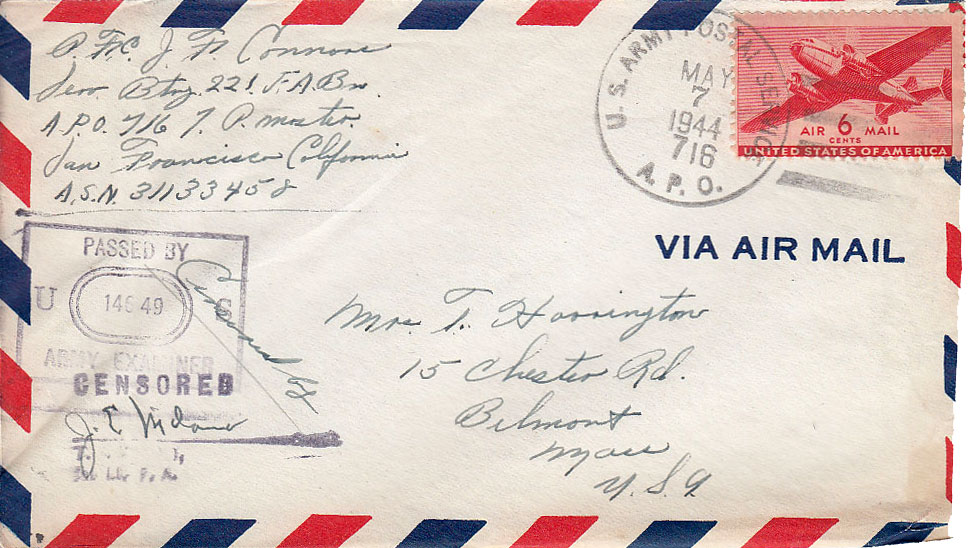 P.F.C. J. F. Connors
Serv. Btry. 221. F.A.Bn.
A.P.O. 716 %
San Francisco California
A.S.N. 31133458
U.S. ARMY POSTAL SERVICE
MAY
7
1944
716
A.P.O.
AIR 6 MAIL
CENTS
UNITED STATES OF AMERICA
VIA AIR MAIL
PASSED BY
U S
ARMY EXAMINER
CENSORED
Censored by
J. E.
F.A.
Mrs. T. Harrington
15 Chester Rd.
Belmont
Mass
U.S.A